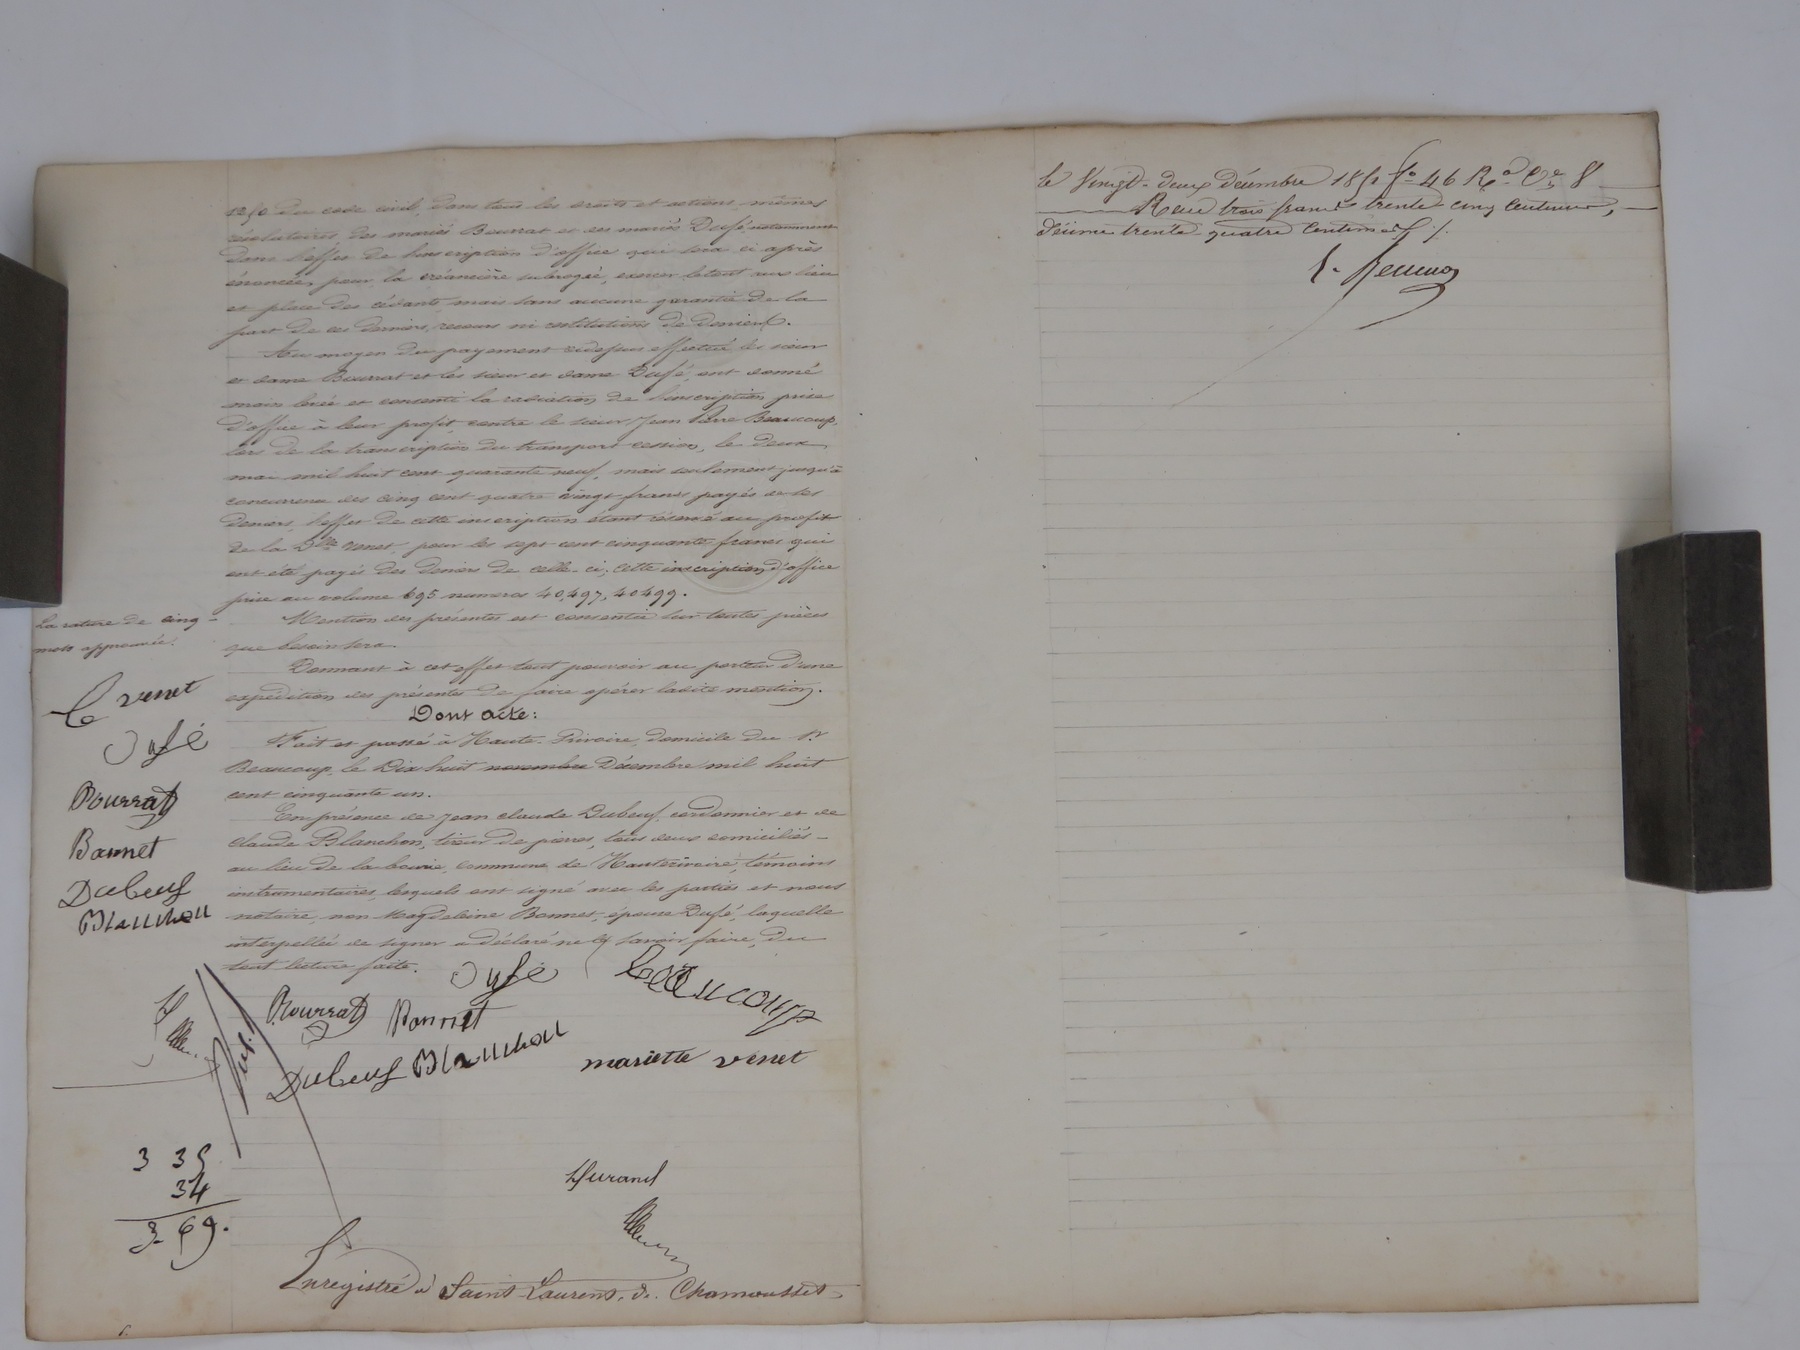 1250 du code civil, dans tous les droits et actions, mêmes
résolutoires, des mariés Bourrat et des mariés Dufé, notamment
dans l'effet de l'inscription d'office qui sera ci après
énoncée, pour la créancière subrogée, exercer le tout aux lieu
et place des cédants, mais sans aucune garantie de la
part de ces derniers, recours ni restitutions de deniers.
Au moyen du payement cidessus effectué les sieur
et dame Bourrat et les sieur et dame Dufé, ont donné
main levée et consenti la radiation de l'inscription prise
d'office à leur profit, contre le sieur Jean Pierre Beaucoup,
lors de la transcription du transport cession, le deux
mai mil huit cent quarante neuf, mais seulement jusqu'à
concurrence des cinq cent quatre vingt francs payés de ses
deniers, l'effet de cette inscription étant réservé au profit
de la Dlle Venet, pour les sept cent cinquante francs qui
ont été payés des deniers de celle-ci; cette inscription d'office
prise au volume 695 numeros 40,497, 40499.
Mention des présentes est consentie sur toutes pièces
que besoin sera.
Donnant à cet effet tout pouvoir au porteur d'une
expédition des présentes de faire opérer ladite mention.
Dont acte:
Fait et passé à Haute-Rivoire, domicile du Sr
Beaucoup, le Dix huit novembre Décembre mil huit
cent cinquante un.
En présence de Jean Claude Dubeuf, cordonnier et de
Claude Blanchon, tireur de pierres, tous deux domiciliés
au lieu de la bourie, commune de Hauterivoire, témoins
instrumentaires, lesquels ont signé avec les parties et nous
notaire, non Magdeleine Bonnet, épouse Dufé, laquelle
interpellée de signer a déclaré ne le savoir faire, du
tout lecture faite.
La rature de cinq
mots approuvée.
venet
Dufé
Bourrat
Bonnet
Dubeuf
Blanchon
Dufé Beaucoup
Bourrat Bonnet
Dubeuf Blanchon mariette venet
3 35
34
3 69.
Durand
Enregistré à Saint-Laurent-de-Chamousset
le Vingt-deux décembre 1851 fo 46 Ro Ce 8
Reçu trois francs trente cinq centimes,
décime trente quatre centimes